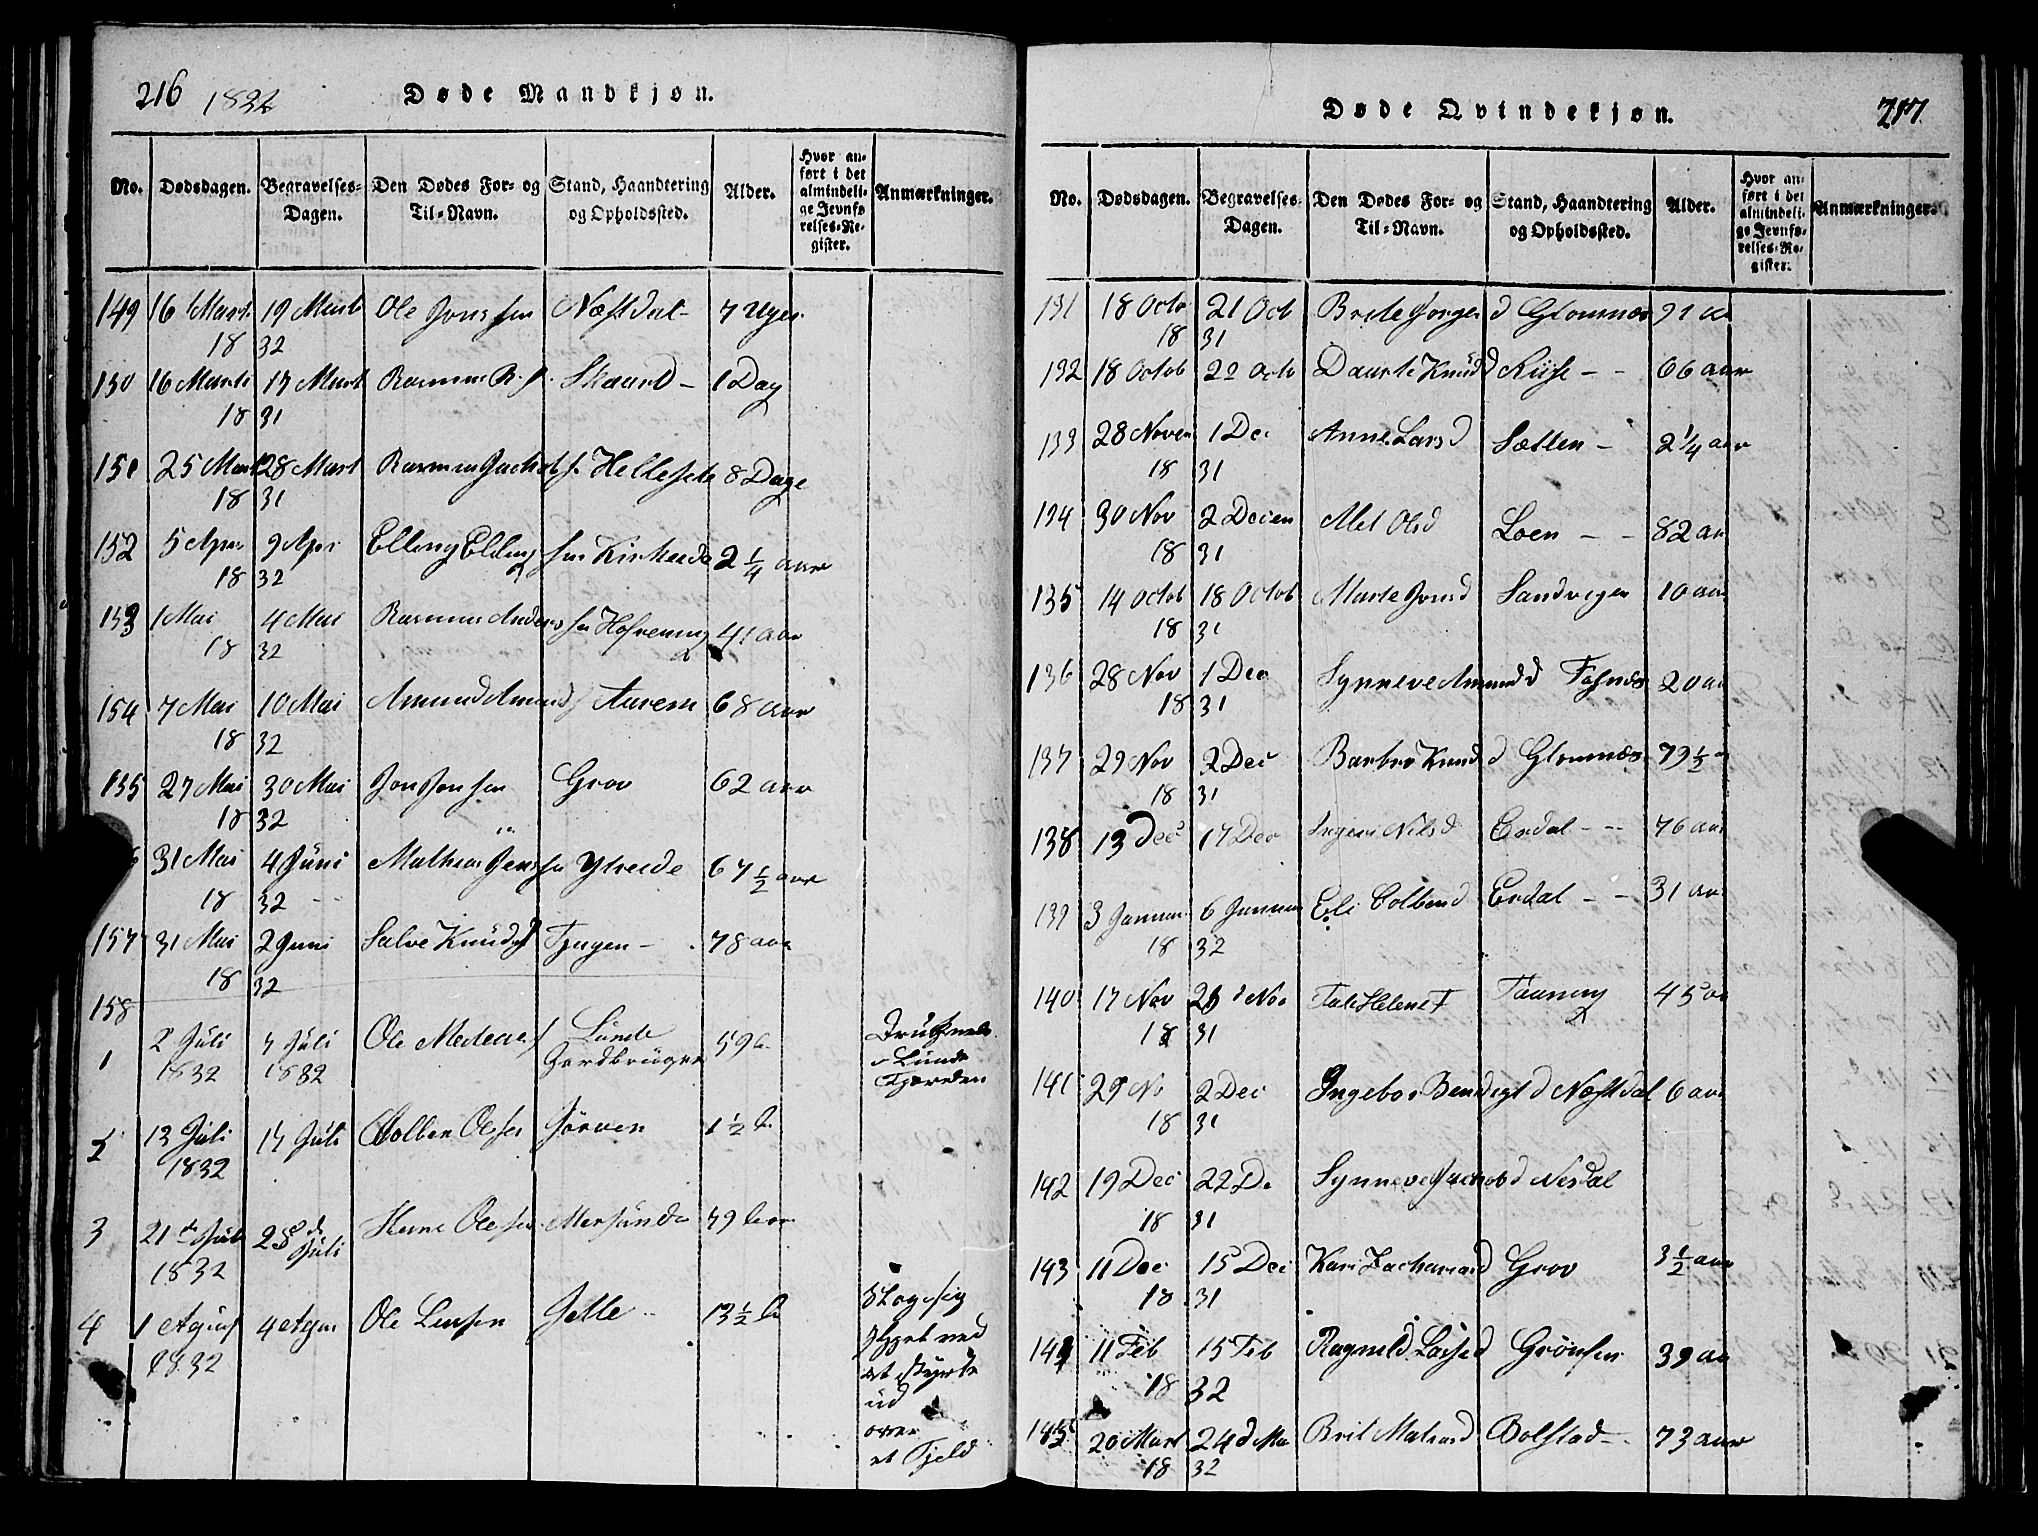 216 1832 Døde Mandkjøn.
No. Dødsdagen. Begravelses-Dagen. Den Dødes For- og Til-Navn. Stand, Haandtering og Opholdssted. Alder. Hvor anført i det almindelige Jevnførelses-Register. Anmærkninger.
149 16 Mart 19 Mart Ole Jonssen Næstdal 7 Uger
18 32
150 16 Marts 17 Mart Rasmus R. s. Skaard - 1 Dag
18 31
151 25 Mart 28 Mart Rasmus Jachobs s. Hellesete 8 Dage
18 31
152 5 Apr 9 Apr Elling Elling sen Kirkeeide 2 1/4 aar
18 32
153 1 Mai 4 Mai Rasmus Anders sen Hofrening 41 aar
18 32
154 7 Mai 10 Mai Amund Amund s Aarem 68 aar
18 32
155 27 Mai 30 Mai Jon Jonsen Grov 62 aar
18 32
31 Mai 4 Juni Mathias Jenssen Ytreide 67 1/2 aar
18 32
157 31 Mai 2 Juni Salve Knuds Tjugen - 78 aar
18 32
158
1 2 Juli 7 Juli Ole s Lunde 59 a
1832 1832 Gardbruger
Drugnede
i Lunde
Fjorden
2 13 Juli 17 Juli Colben Olssen Jørven 1 1/2 a
1832
3 21 de Juli 25 de Juli Olesen 79 Aar
1832
4 1 August 4 Agus Ole Larsen Jelle 13 1/2 a
1832
Slog sig
ihjel ved
at styrte
ud
over
et Fjeld
Døde Qvindekjøn. 217
No. Dødsdagen. Begravelses-Dagen. Den Dødes For- og Til-Navn. Stand, Haandtering og Opholdssted. Alder. Hvor anført i det almindelige Jevnførelses-Register. Anmærkninger.
131 18 Octo 21 Oct Brite d Glomnæs 91 aar
18 31
132 18 Octob 22 Octo Daarte Knud d Riise - - 66 aar
133 28 Noven 1 De Anne Lars d Sætten - 2 1/4 aar
18 31
134 30 Nov 2 Decen Met Ols d Loen - - 82 aar
18 31
135 14 Octob 18 Octob Marte Jons d Sandvigen 10 aar
18 31
136 28 Nov 1 Dec Synneve Amund d Fosnæs 20 aar
18 31
137 29 Nov 2 Dec Barbro Knud d Glomnæs 79 1/2 a
18 31
138 13 Dec 17 Dec Nils d Erdal - - 76 aar
139 3 Januar 6 Januar Eli Colben d Erdal - - 31 aar
18 32
140 17 Nov 21 Nov Tale Helene T Taaning 45 aar
18 31
141 29 No 2 Dec Ingebor Bendigt d Næstdal 6 aar
18 31
142 19 Dec 22 De Synneve Jachob d Nesdal
18 31
143 11 Dec 15 Dec Kari Zacharias d Grov 3 1/2 aar
18 31
144 11 Feb 15 Feb Ragnild Lasse d Grønfur 39 aa
18 32
145 20 Mart 24 d Ma Brit Mats d Bolstad - 73 aar
18 32